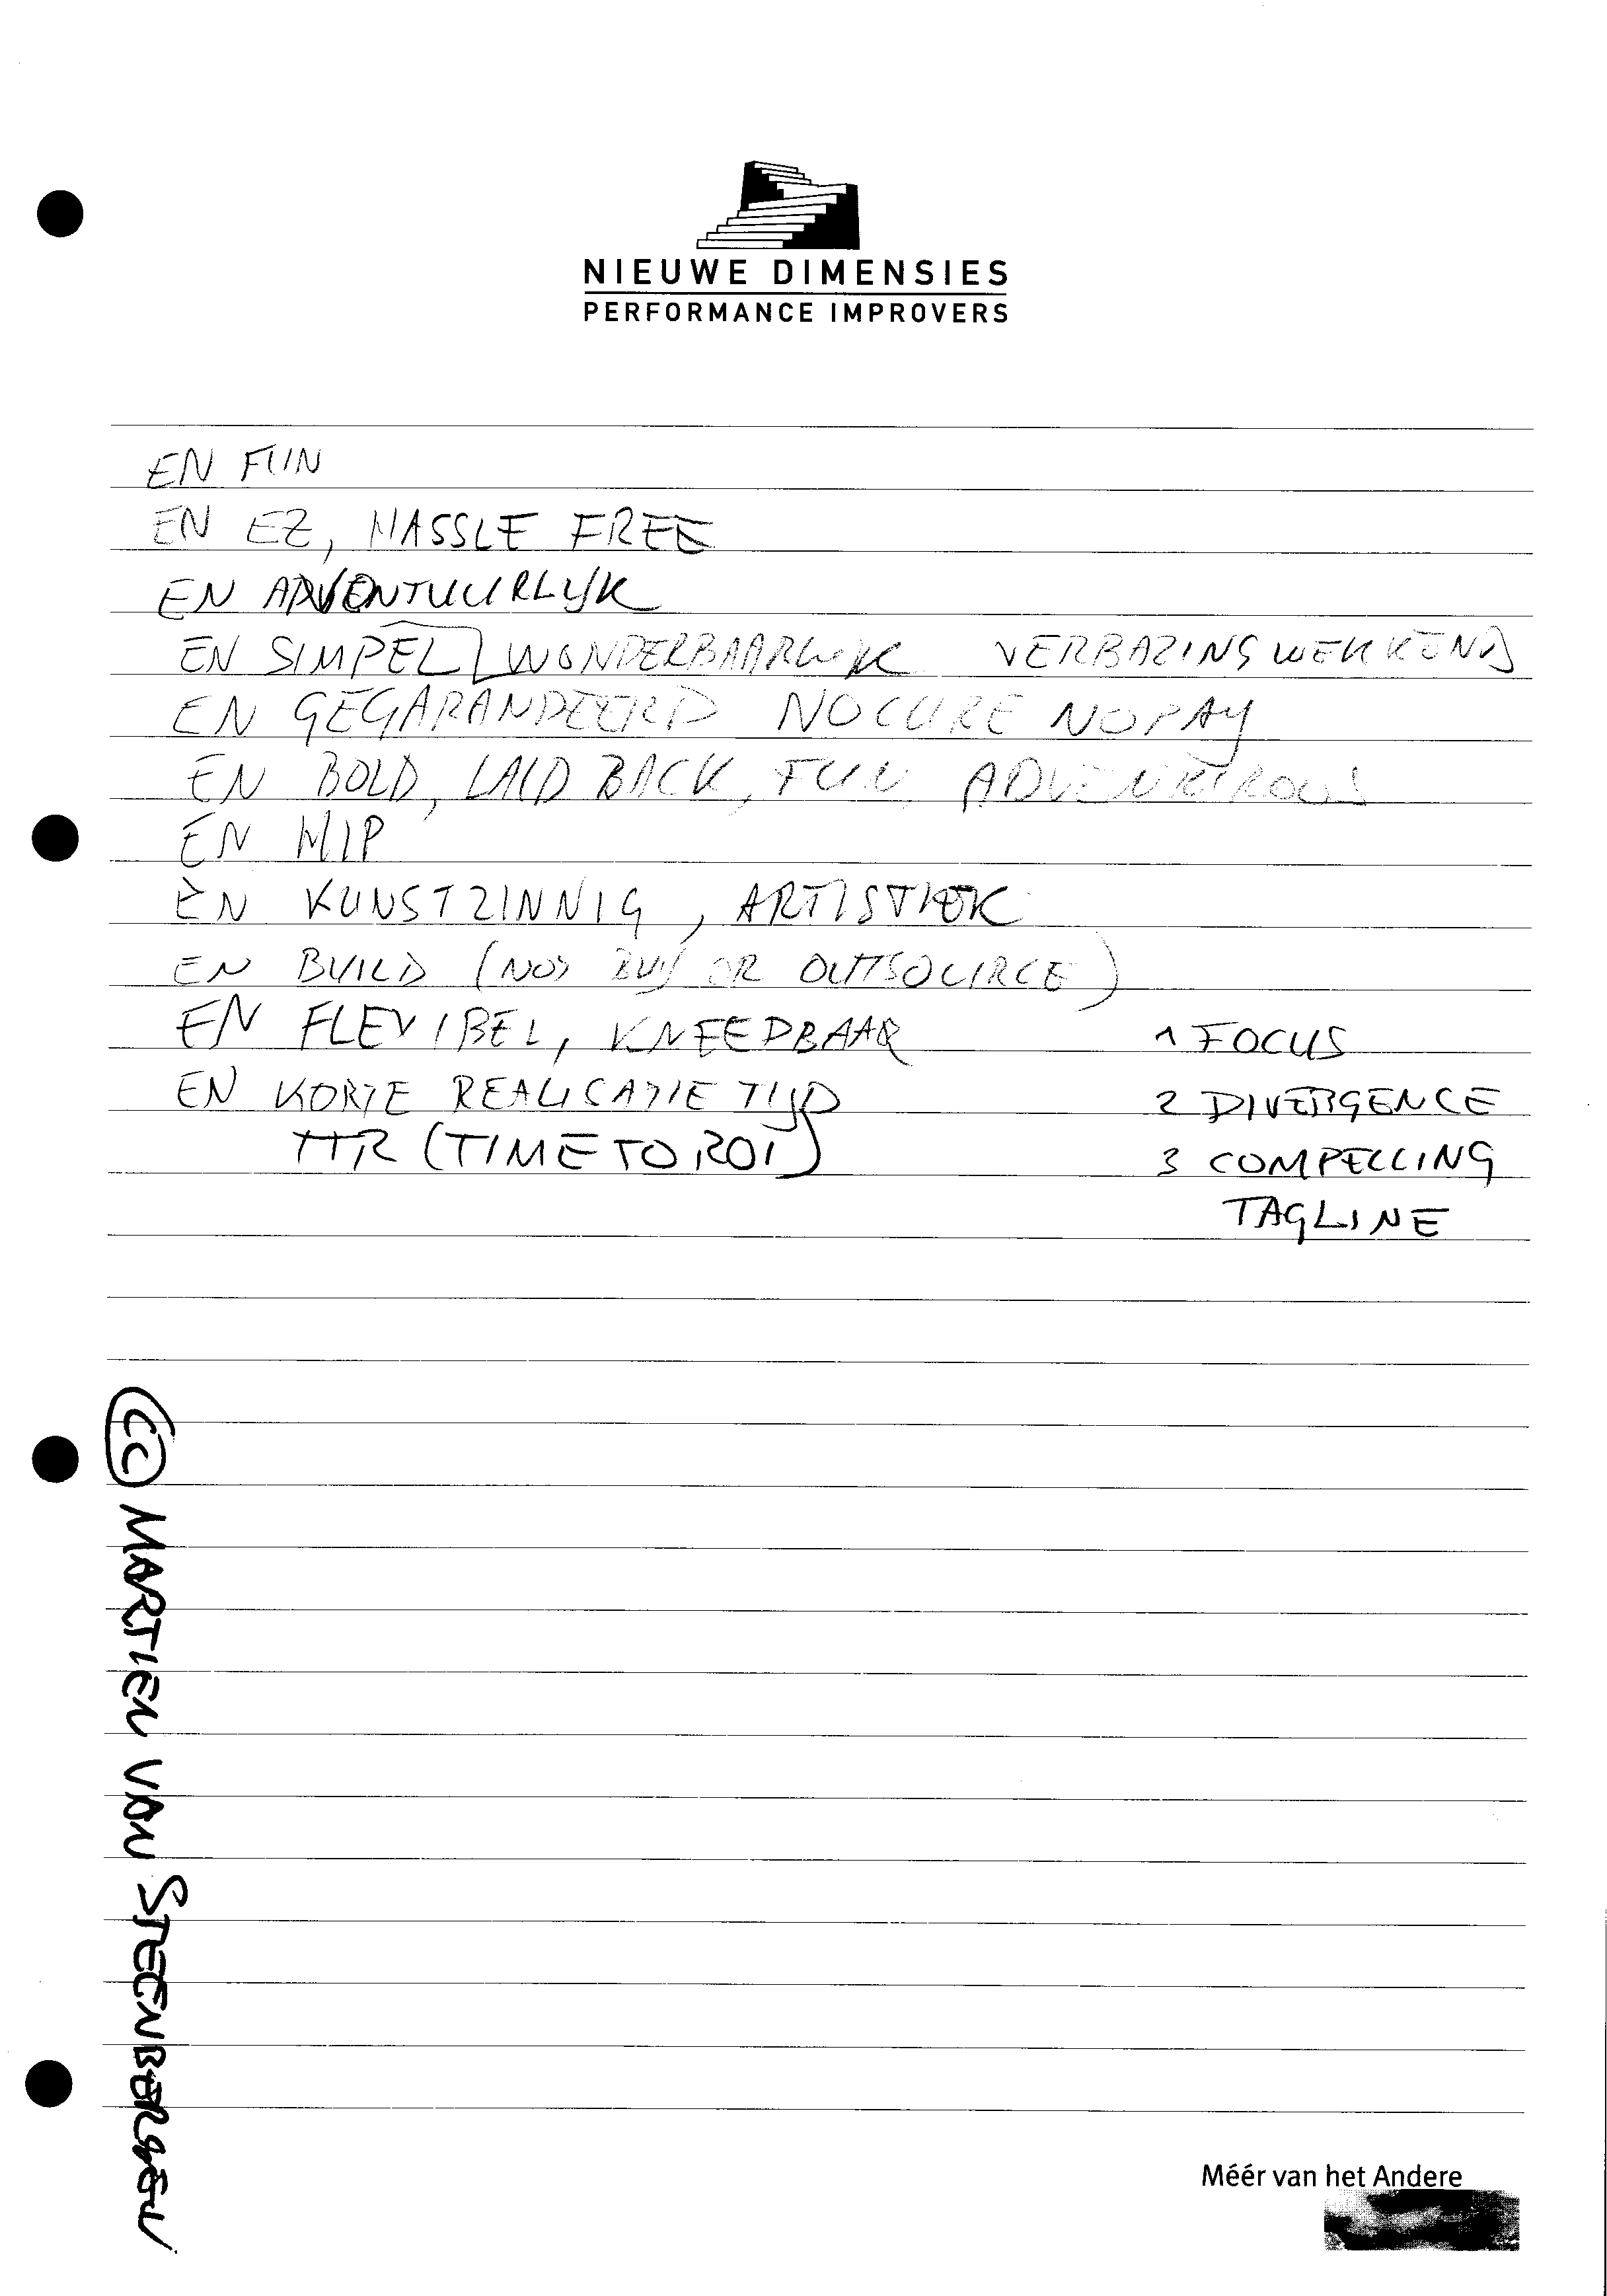 NIEUWE DIMENSIES
PERFORMANCE IMPROVERS
EN FUN
EN EZ, HASSLE FREE
EN ADVONTUURLIJK
EN SIMPEL WONDERBAARLIJK VERBAZINGWEKKEND
EN GEGARANDEERD NO CURE NO PAY
EN BOLD, LAID BACK, FUN, ADVENTUROUS
EN HIP
EN KUNSTZINNIG, ARTISTIEK
EN BUILD (NOT BUY OR OUTSOURCE)
EN FLEXIBEL, KNEEDBAAR
EN KORTE REALISATIE TIJD
TTR (TIME TO ROI)
1 FOCUS
2 DIVERGENCE
3 COMPELLING
TAGLINE
(cc) MARTIEN VAN STEENBERGEN
Méér van het Andere